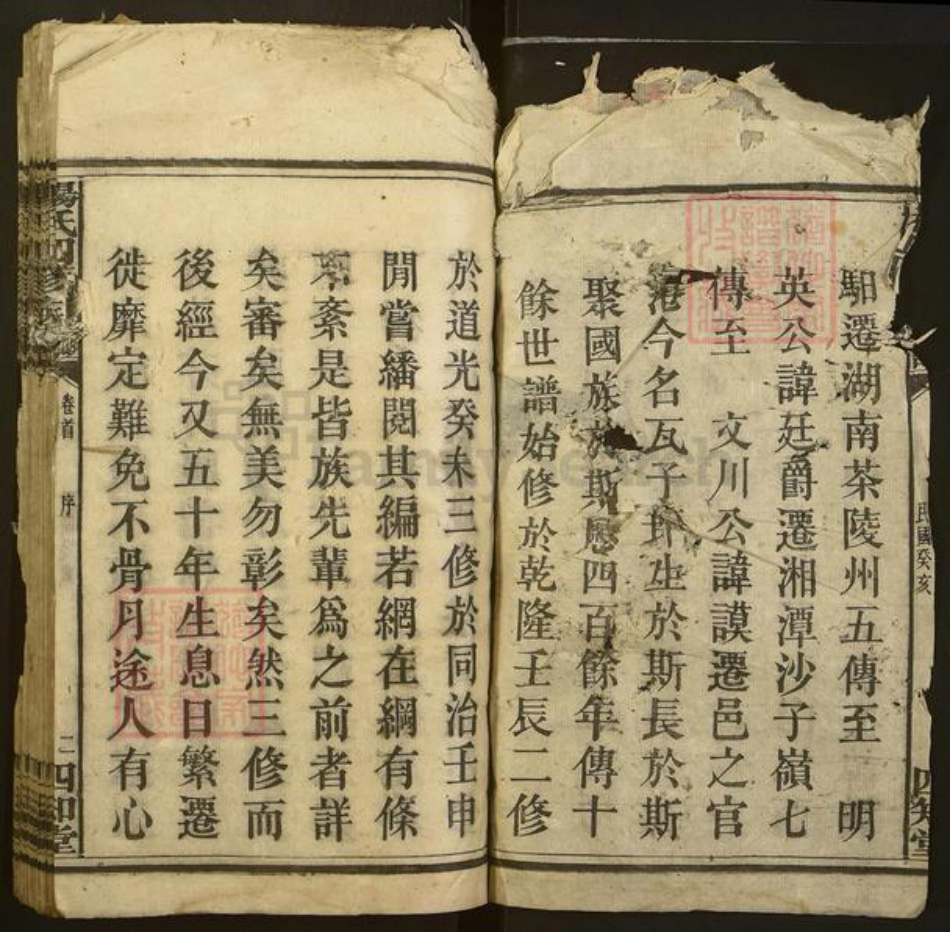 民國癸亥
四知堂
馹遷湖南茶陵州五傳至 明
英公諱廷爵遷湘潭沙子嶺七
傳至 文川公諱謨遷邑之官
港今名瓦子坪生於斯長於斯
聚國族於斯歷四百餘年傳十
餘世譜始修於乾隆壬辰二修
於道光癸未三修於同治壬申
閒嘗繙閱其編若網在綱有條
不紊是皆族先輩爲之前者詳
矣審矣無美勿彰矣然三修而
後經今又五十年生息日繁遷
徙靡定難免不骨月途人有心
楊氏四修族
卷首
序
二
四知堂